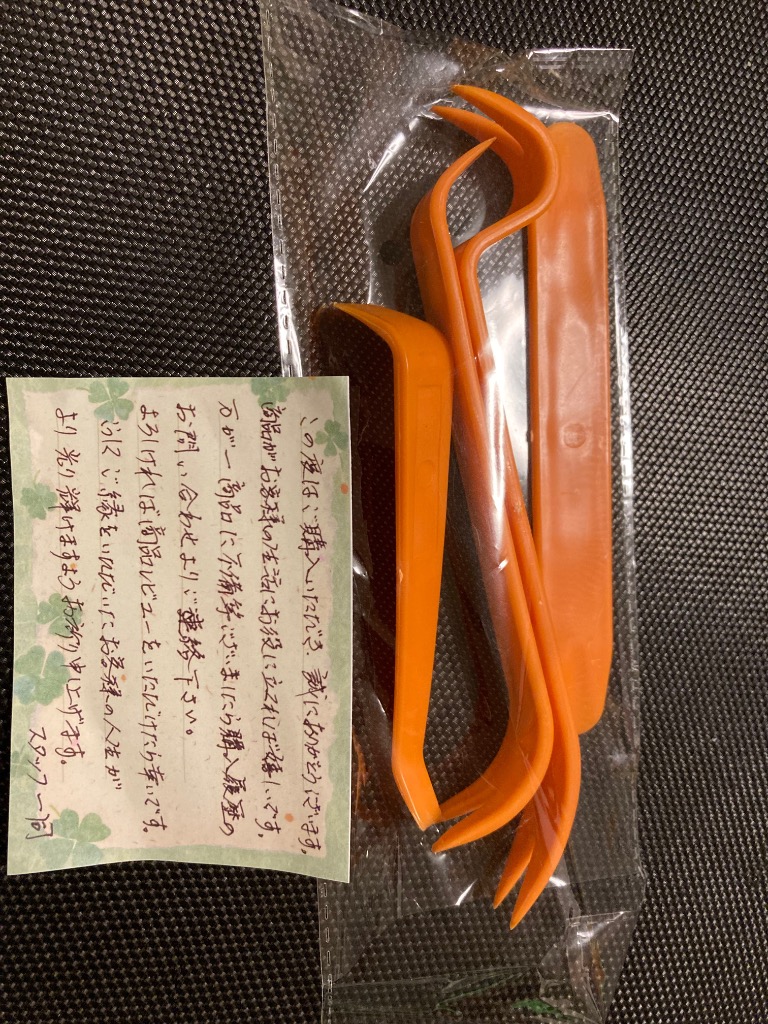 この度はご購入いただき、誠にありがとうございます。
商品がお客様の生活にお役に立てれば嬉しいです。
万が一商品に不備等ございましたら購入履歴の
お問い合わせよりご連絡下さい。
よろしければ商品レビューをいただけたら幸いです。
ご縁をいただいたお客様の人生が
より光り輝けますようお祈り申し上げます。
スタッフ一同